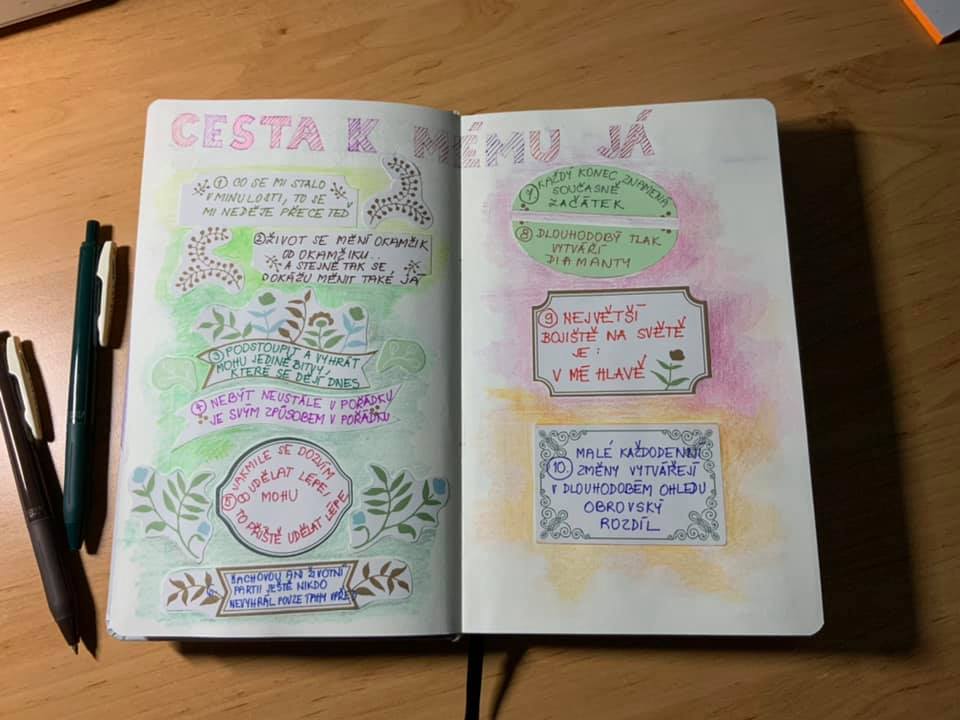 CESTA K MÉMU JÁ
① CO SE MI STALO
V MINULOSTI, TO SE
MI NEDĚJE PŘECE TEĎ
② ŽIVOT SE MĚNÍ OKAMŽIK
OD OKAMŽIKU..
A STEJNĚ TAK SE
DOKÁŽU MĚNIT TAKÉ JÁ
③ PODSTOUPIT A VYHRÁT
MOHU JEDINĚ BITVY,
KTERÉ SE DĚJÍ DNES
④ NEBÝT NEUSTÁLE V POŘÁDKU
JE SVÝM ZPŮSOBEM V POŘÁDKU
⑤ JAKMILE SE DOZVÍM
CO UDĚLAT LÉPE,
MOHU
TO PŘÍŠTĚ UDĚLAT LÉPE
ŠACHOVOU ANI ŽIVOTNÍ
PARTII JEŠTĚ NIKDO
NEVYHRÁL POUZE TAHY VPŘED
⑦ KAŽDÝ KONEC ZNAMENÁ
SOUČASNĚ
ZAČÁTEK
⑧ DLOUHODOBÝ TLAK
VYTVÁŘÍ
DIAMANTY
⑨ NEJVĚTŠÍ
BOJIŠTĚ NA SVĚTĚ
JE:
V MÉ HLAVĚ
⑩. MALÉ KAŽDODENNÍ
ZMĚNY VYTVÁŘEJÍ
V DLOUHODOBÉM OHLEDU
OBROVSKÝ
ROZDÍL